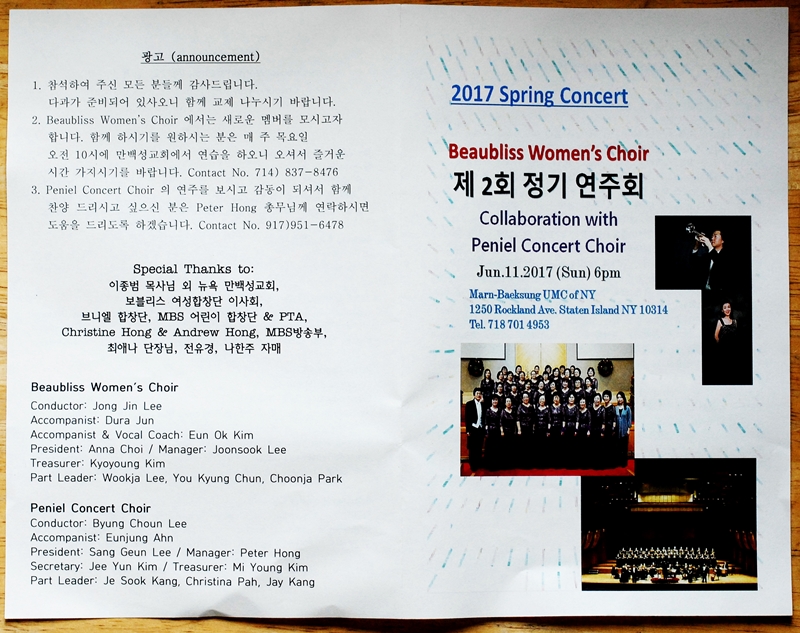 광고 (announcement)
1. 참석하여 주신 모든 분들께 감사드립니다.
다과가 준비되어 있사오니 함께 교제 나누시기 바랍니다.
2. Beaubliss Women's Choir 에서는 새로운 멤버를 모시고자
합니다. 함께 하시기를 원하시는 분은 매 주 목요일
오전 10시에 만백성교회에서 연습을 하오니 오셔서 즐거운
시간 가지시기를 바랍니다. Contact No. 714) 837-8476
3. Peniel Concert Choir 의 연주를 보시고 감동이 되셔서 함께
찬양 드리시고 싶으신 분은 Peter Hong 총무님께 연락하시면
도움을 드리도록 하겠습니다. Contact No. 917)951-6478
Special Thanks to:
이종범 목사님 외 뉴욕 만백성교회,
보블리스 여성합창단 이사회,
브니엘 합창단, MBS 어린이 합창단 & PTA,
Christine Hong & Andrew Hong, MBS방송부,
최애나 단장님, 전유경, 나한주 자매
Beaubliss Women's Choir
Conductor: Jong Jin Lee
Accompanist: Dura Jun
Accompanist & Vocal Coach: Eun Ok Kim
President: Anna Choi / Manager: Joonsook Lee
Treasurer: Kyoyoung Kim
Part Leader: Wookja Lee, You Kyung Chun, Choonja Park
Peniel Concert Choir
Conductor: Byung Choun Lee
Accompanist: Eunjung Ahn
President: Sang Geun Lee / Manager: Peter Hong
Secretary: Jee Yun Kim / Treasurer: Mi Young Kim
Part Leader: Je Sook Kang, Christina Pah, Jay Kang
2017 Spring Concert
Beaubliss Women's Choir
제 2회 정기 연주회
Collaboration with
Peniel Concert Choir
Jun.11.2017 (Sun) 6pm
Marn-Baeksung UMC of NY
1250 Rockland Ave. Staten Island NY 10314
Tel. 718 701 4953